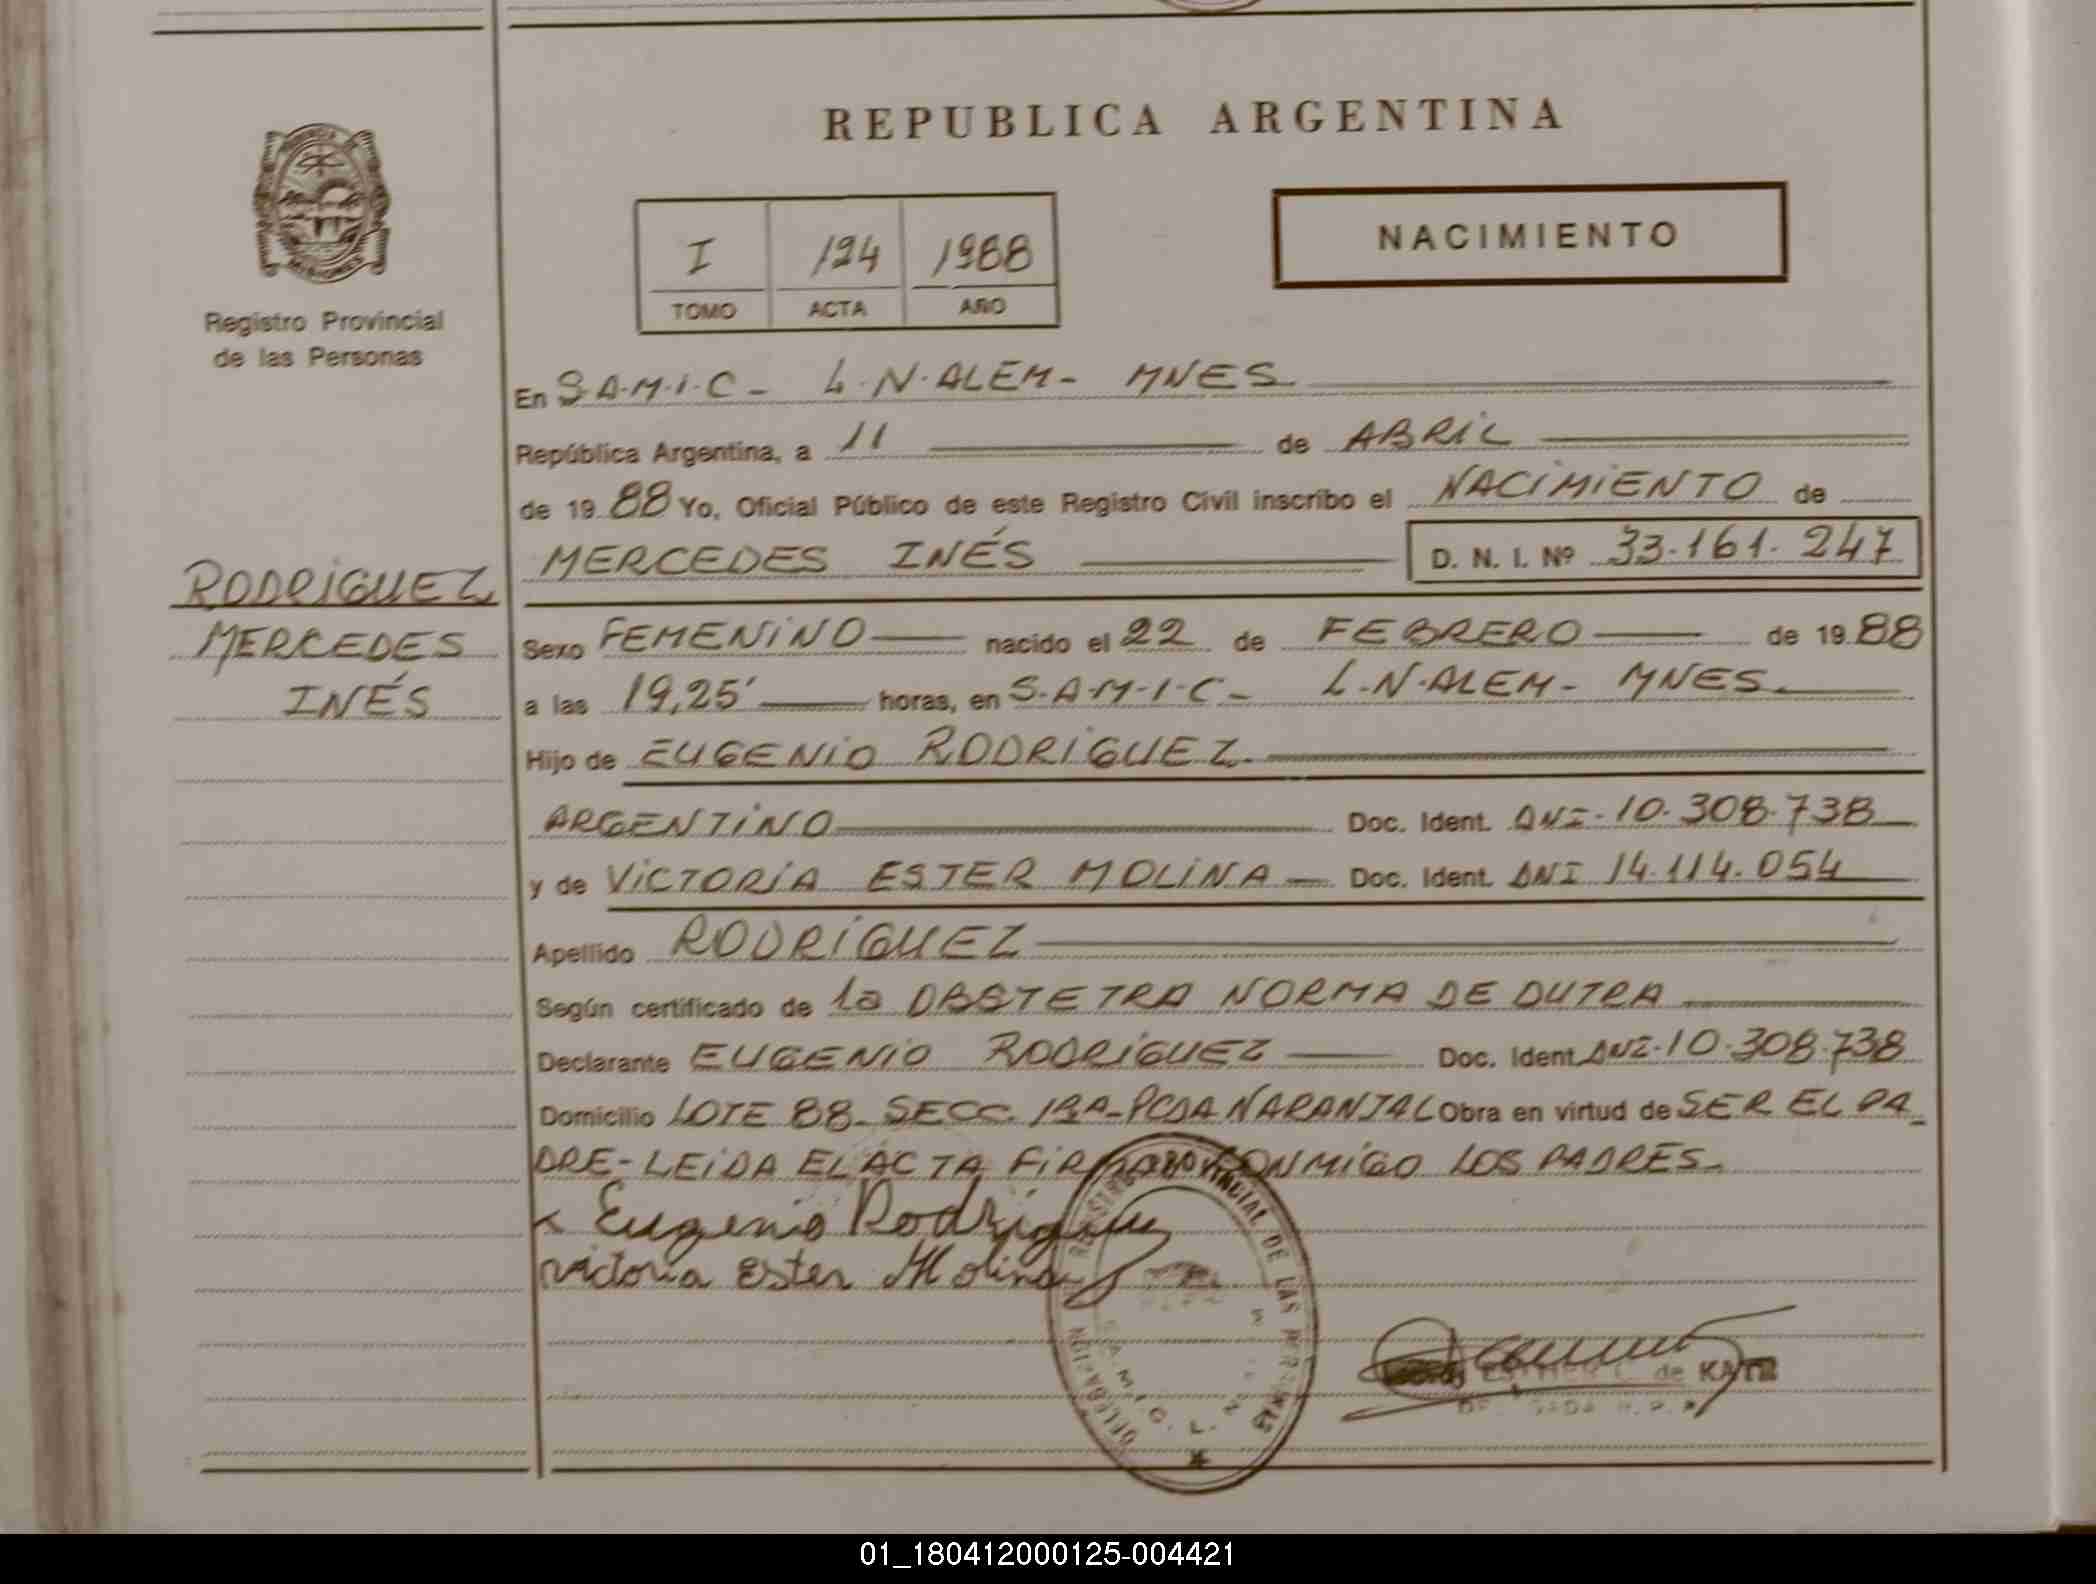 REPUBLICA ARGENTINA
NACIMIENTO
I 124 1988
TOMO ACTA AÑO
Registro Provincial
de las Personas
En S.A.M.I.C- L.N.ALEM- MNES
República Argentina, a 11 de ABRIL
de 1988 Yo, Oficial Público de este Registro Civil inscribo el NACIMIENTO de
MERCEDES INÉS D. N. I. Nº 33.161.247
RODRIGUEZ
MERCEDES
INÉS
Sexo FEMENINO nacido el 22 de FEBRERO de 1988
a las 19,25' horas, en S.A.M.I.C- L.N.ALEM- MNES.
Hijo de EUGENIO RODRIGUEZ.
ARGENTINO Doc. Ident. DNI-10.308.738
y de VICTORIA ESTER MOLINA Doc. Ident. DNI 14.114.054
Apellido RODRIGUEZ
Según certificado de la OBSTETRA NORMA DE DUTRA
Declarante EUGENIO RODRIGUEZ Doc. Ident. DNI-10.308.738
Domicilio LOTE 88-SECC. -PCDA NARANJAL Obra en virtud de SER EL PA_
DRE-LEIDA EL ACTA CONMIGO LOS PADRES.
x Eugenio Rodriguez
victoria Ester Molina
REGISTRO PROVINCIAL DE LAS PERSONAS
DELEGACION
de KATR
01_180412000125-004421